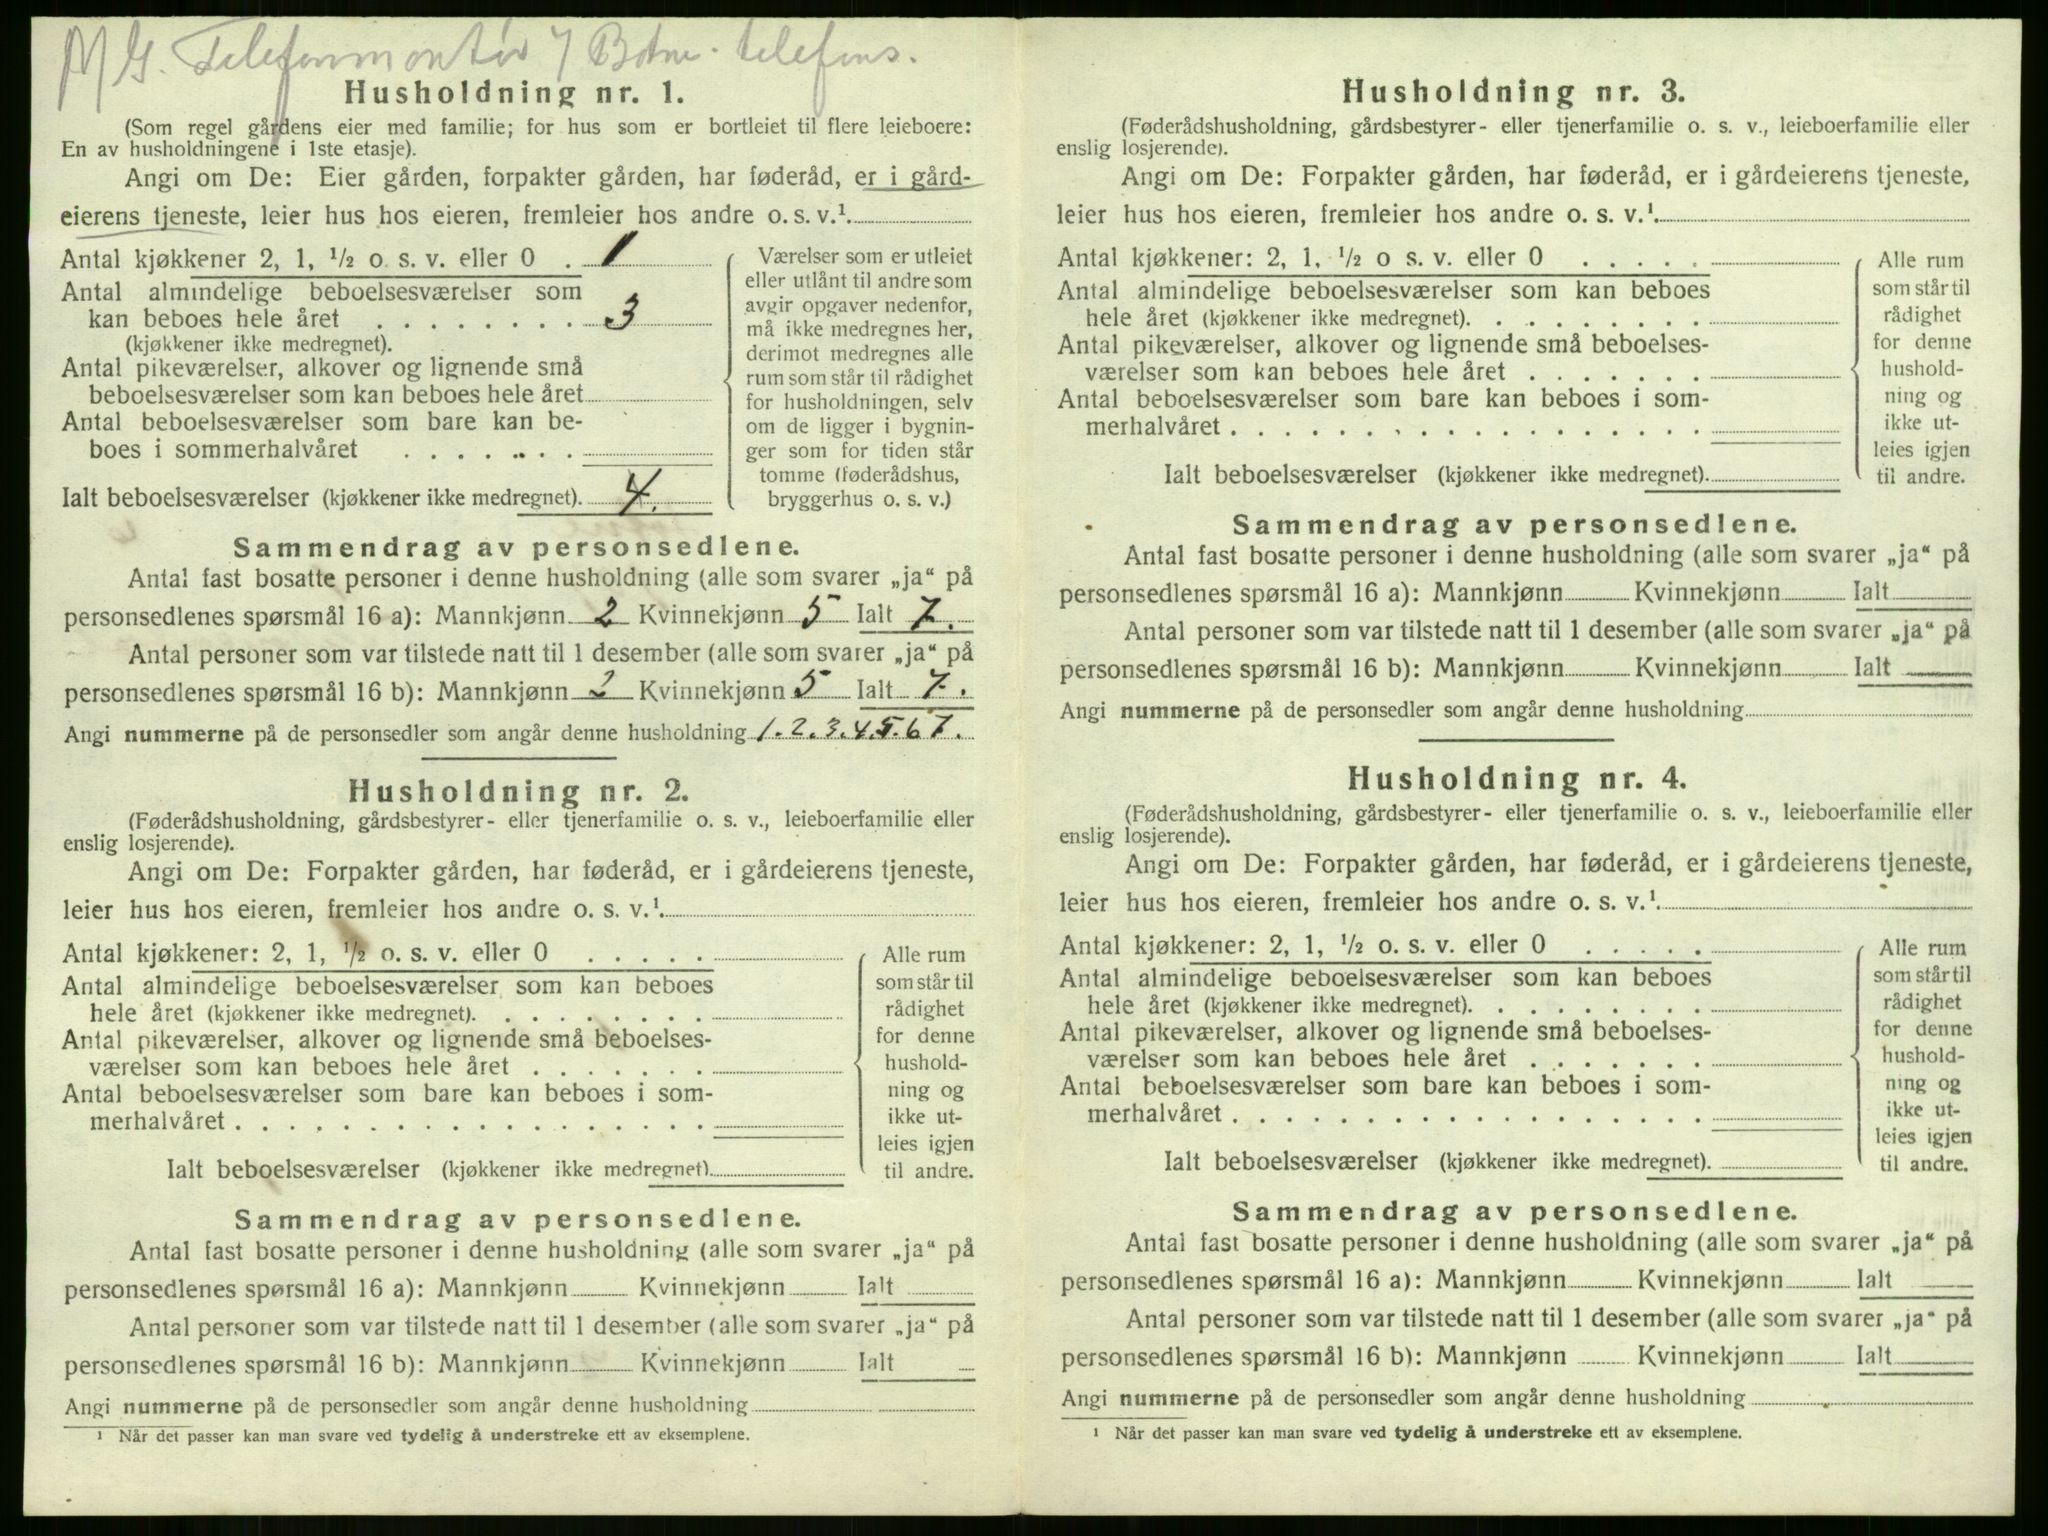 M G. Telefonmontør Botne telefons.
Husholdning nr. 1.
(Som regel gårdens eier med familie; for hus som er bortleiet til flere leieboere:
En av husholdningene i 1ste etasje).
Angi om De: Eier gården, forpakter gården, har føderåd, er i gård-
eierens tjeneste, leier hus hos eieren, fremleier hos andre o. s. v.¹
Antal kjøkkener 2, 1, ½ o. s. v. eller 0 . 1
Antal almindelige beboelsesværelser som
kan beboes hele året . . . . . . . . 3
(kjøkkener ikke medregnet).
Antal pikeværelser, alkover og lignende små
beboelsesværelser som kan beboes hele året
Antal beboelsesværelser som bare kan be-
boes i sommerhalvåret . . . . . . .
Ialt beboelsesværelser (kjøkkener ikke medregnet). 4.
Værelser som er utleiet
eller utlånt til andre som
avgir opgaver nedenfor,
må ikke medregnes her,
derimot medregnes alle
rum som står til rådighet
for husholdningen, selv
om de ligger i bygnin-
ger som for tiden står
tomme (føderådshus,
bryggerhus o. s. v.)
Sammendrag av personsedlene.
Antal fast bosatte personer i denne husholdning (alle som svarer „ja“ på
personsedlenes spørsmål 16 a): Mannkjønn 2 Kvinnekjønn 5 Ialt 7.
Antal personer som var tilstede natt til 1 desember (alle som svarer „ja“ på
personsedlenes spørsmål 16 b): Mannkjønn 2 Kvinnekjønn 5 Ialt 7.
Angi nummerne på de personsedler som angår denne husholdning 1. 2. 3. 4. 5. 6 7.
Husholdning nr. 2.
(Føderådshusholdning, gårdsbestyrer- eller tjenerfamilie o. s. v., leieboerfamilie eller
enslig losjerende).
Angi om De: Forpakter gården, har føderåd, er i gårdeierens tjeneste,
leier hus hos eieren, fremleier hos andre o. s. v.¹
Antal kjøkkener: 2, 1, ½ o. s. v. eller 0 . . . . .
Antal almindelige beboelsesværelser som kan beboes
hele året (kjøkkener ikke medregnet). . . . . . . . .
Antal pikeværelser, alkover og lignende små beboelses-
værelser som kan beboes hele året . . . . . . .
Antal beboelsesværelser som bare kan beboes i som-
merhalvåret . . . . . . . . . . . . . . . . . .
Ialt beboelsesværelser (kjøkkener ikke medregnet).
Alle rum
som står til
rådighet
for denne
hushold-
ning og
ikke ut-
leies igjen
til andre.
Sammendrag av personsedlene.
Antal fast bosatte personer i denne husholdning (alle som svarer „ja“ på
personsedlenes spørsmål 16 a): Mannkjønn Kvinnekjønn Ialt
Antal personer som var tilstede natt til 1 desember (alle som svarer „ja“ på
personsedlenes spørsmål 16 b): Mannkjønn Kvinnekjønn Ialt
Angi nummerne på de personsedler som angår denne husholdning
¹ Når det passer kan man svare ved tydelig å understreke ett av eksemplene.
Husholdning nr. 3.
(Føderådshusholdning, gårdsbestyrer- eller tjenerfamilie o. s. v., leieboerfamilie eller
enslig losjerende).
Angi om De: Forpakter gården, har føderåd, er i gårdeierens tjeneste,
leier hus hos eieren, fremleier hos andre o. s. v.¹
Antal kjøkkener: 2, 1, ½ o s. v. eller 0 . . . . .
Antal almindelige beboelsesværelser som kan beboes
hele året (kjøkkener ikke medregnet). . . . . . . . .
Antal pikeværelser, alkover og lignende små beboelses-
værelser som kan beboes hele året . . . . . . .
Antal beboelsesværelser som bare kan beboes i som-
merhalvåret . . . . . . . . . . . . . . . . . .
Ialt beboelsesværelser (kjøkkener ikke medregnet).
Alle rum
som står til
rådighet
for denne
hushold-
ning og
ikke ut-
leies igjen
til andre.
Sammendrag av personsedlene.
Antal fast bosatte personer i denne husholdning (alle som svarer „ja“ på
personsedlenes spørsmål 16 a): Mannkjønn Kvinnekjønn Ialt
Antal personer som var tilstede natt til 1 desember (alle som svarer „ja“ på
personsedlenes spørsmål 16 b): Mannkjønn Kvinnekjønn Ialt
Angi nummerne på de personsedler som angår denne husholdning
Husholdning nr. 4.
(Føderådshusholdning, gårdsbestyrer- eller tjenerfamilie o. s. v., leieboerfamilie eller
enslig losjerende).
Angi om De: Forpakter gården, har føderåd, er i gårdeierens tjeneste,
leier hus hos eieren, fremleier hos andre o. s. v.¹
Antal kjøkkener: 2, 1, ½ o. s. v. eller 0 . . . . .
Antal almindelige beboelsesværelser som kan beboes
hele året (kjøkkener ikke medregnet). . . . . . . . .
Antal pikeværelser, alkover og lignende små beboelses-
værelser som kan beboes hele året . . . . . . .
Antal beboelsesværelser som bare kan beboes i som-
merhalvåret . . . . . . . . . . . . . . . . . .
Ialt beboelsesværelser (kjøkkener ikke medregnet).
Alle rum
som står til
rådighet
for denne
hushold-
ning og
ikke ut-
leies igjen
til andre.
Sammendrag av personsedlene.
Antal fast bosatte personer i denne husholdning (alle som svarer „ja“ på
personsedlenes spørsmål 16 a): Mannkjønn Kvinnekjønn Ialt
Antal personer som var tilstede natt til 1 desember (alle som svarer „ja“ på
personsedlenes spørsmål 16 b): Mannkjønn Kvinnekjønn Ialt
Angi nummerne på de personsedler som angår denne husholdning
¹ Når det passer kan man svare ved tydelig å understreke ett av eksemplene.